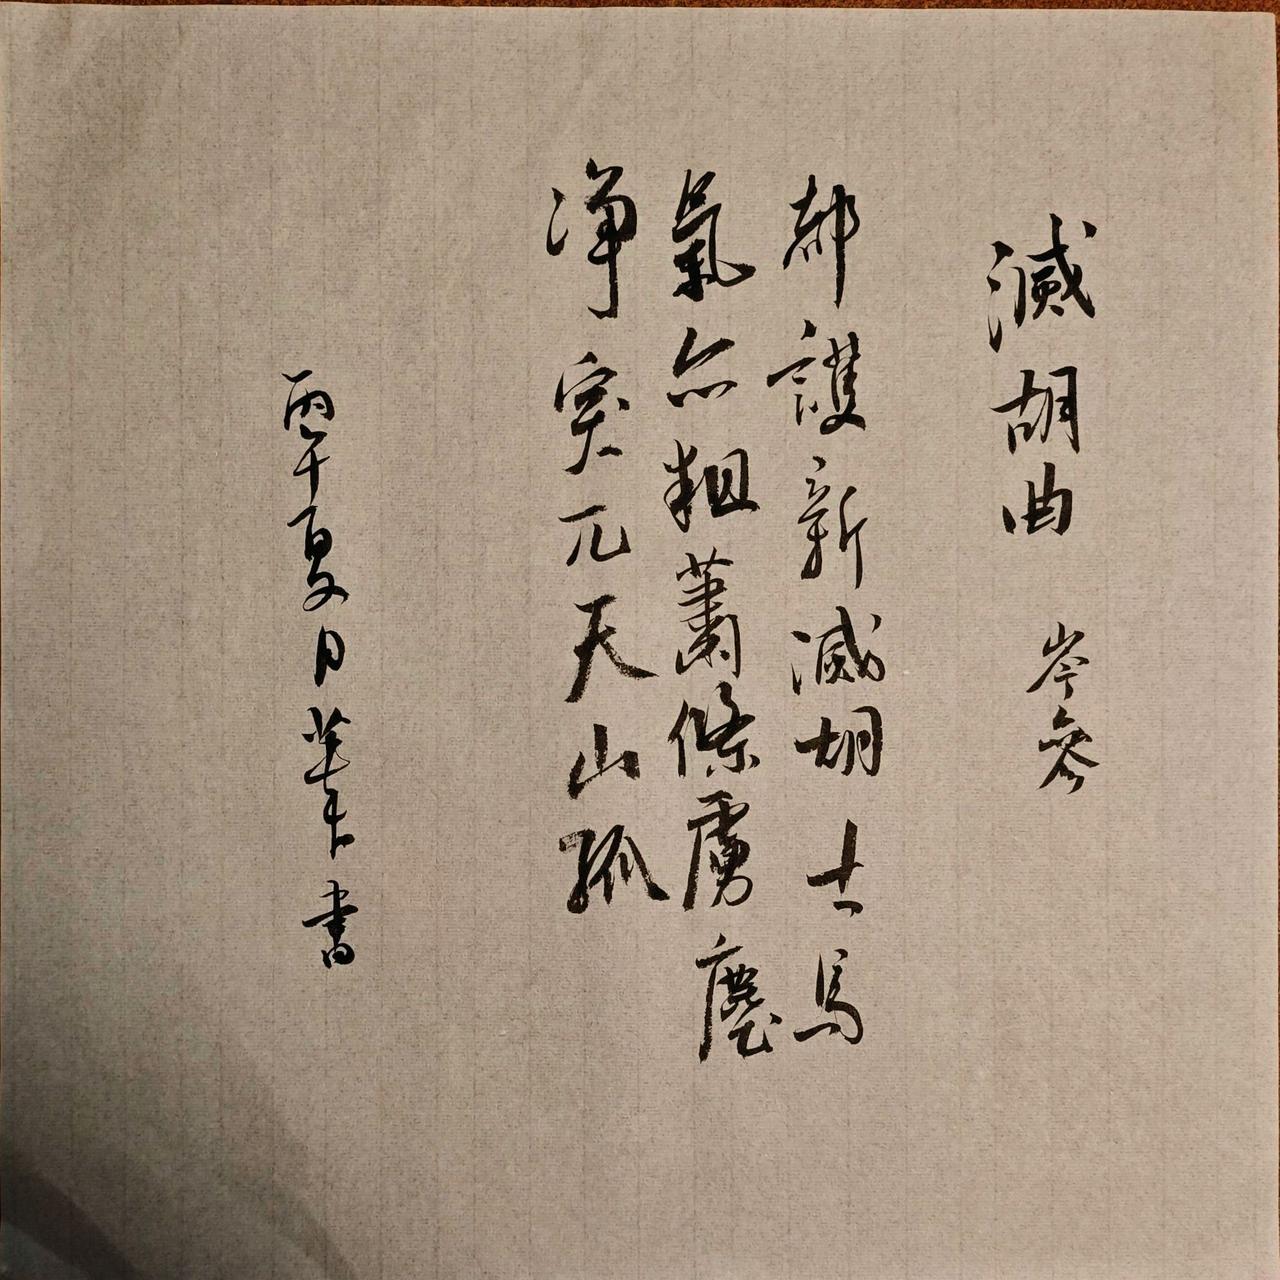 滅胡曲 岑參
都護新滅胡士馬
氣亦粗蕭條虜塵
淨突兀天山孤
丙午夏月 書